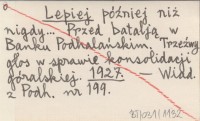 Lepiej później niż
nigdy... Przed batalją w
Banku Podhalańskim. Trzeźwy
głos w sprawie konsolidacji
góralskiej. 1927. — Widd.
z Podh. nr 199.